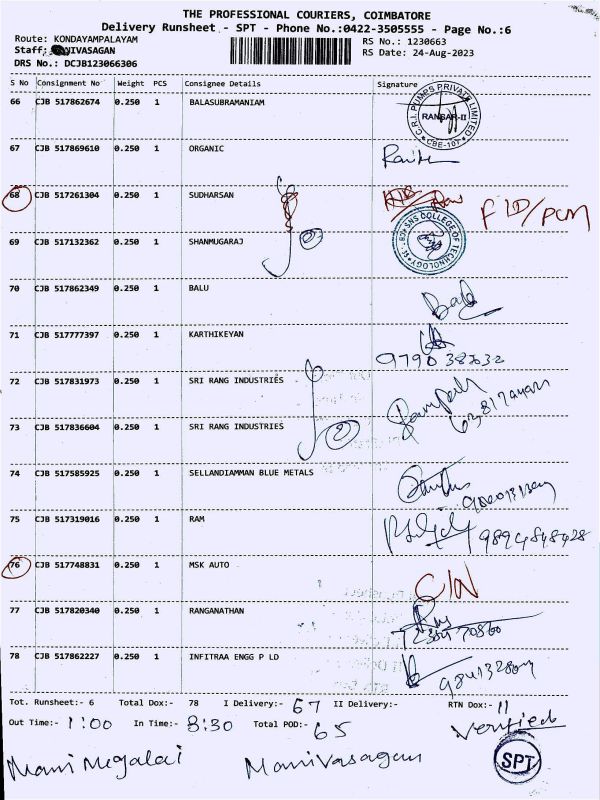 THE PROFESSIONAL COURIERS, COIMBATORE
Delivery Runsheet - SPT - Phone No.:0422-3505555 - Page No.:6
Route: KONDAYAMPALAYAM RS No.: 1230663
Staff: IVASAGAN RS Date: 24-Aug-2023
DRS No.: DCJB123066306
S No Consignment No Weight PCS Consignee Details Signature
66 CJB 517862674 0.250 1 BALASUBRAMANIAM
C.R.I. PUMPS PRIVATE LIMITED
CBE-107
67 CJB 517869610 0.250 1 ORGANIC
68 CJB 517261304 0.250 1 SUDHARSAN
69 CJB 517132362 0.250 1 SHANMUGARAJ
SNS COLLEGE OF TECHNOLOGY
70 CJB 517862349 0.250 1 BALU
71 CJB 517777397 0.250 1 KARTHIKEYAN
72 CJB 517831973 0.250 1 SRI RANG INDUSTRIES
73 CJB 517836604 0.250 1 SRI RANG INDUSTRIES
74 CJB 517585925 0.250 1 SELLANDIAMMAN BLUE METALS
75 CJB 517319016 0.250 1 RAM 9894848428
76 CJB 517748831 0.250 1 MSK AUTO C/N
77 CJB 517820340 0.250 1 RANGANATHAN
78 CJB 517862227 0.250 1 INFITRAA ENGG P LD
Tot. Runsheet:- 6 Total Dox:- 78 I Delivery:- 67 II Delivery:- RTN Dox:- 11
Out Time:- 1:00 In Time:- 8:30 Total POD:- 65 Verified
Mani Megalai Manivasagan SPT